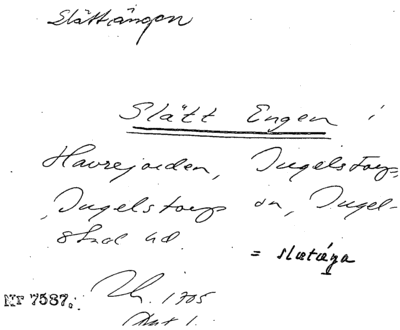 Slättängen
Slätt Engen i
Havrejorden, Ingelstorp,
Ingelstorps sn, Ingel-
stad hd.
= slætæ̀ṇa
Lh. 1705
Nr 7587.
Akt 1.